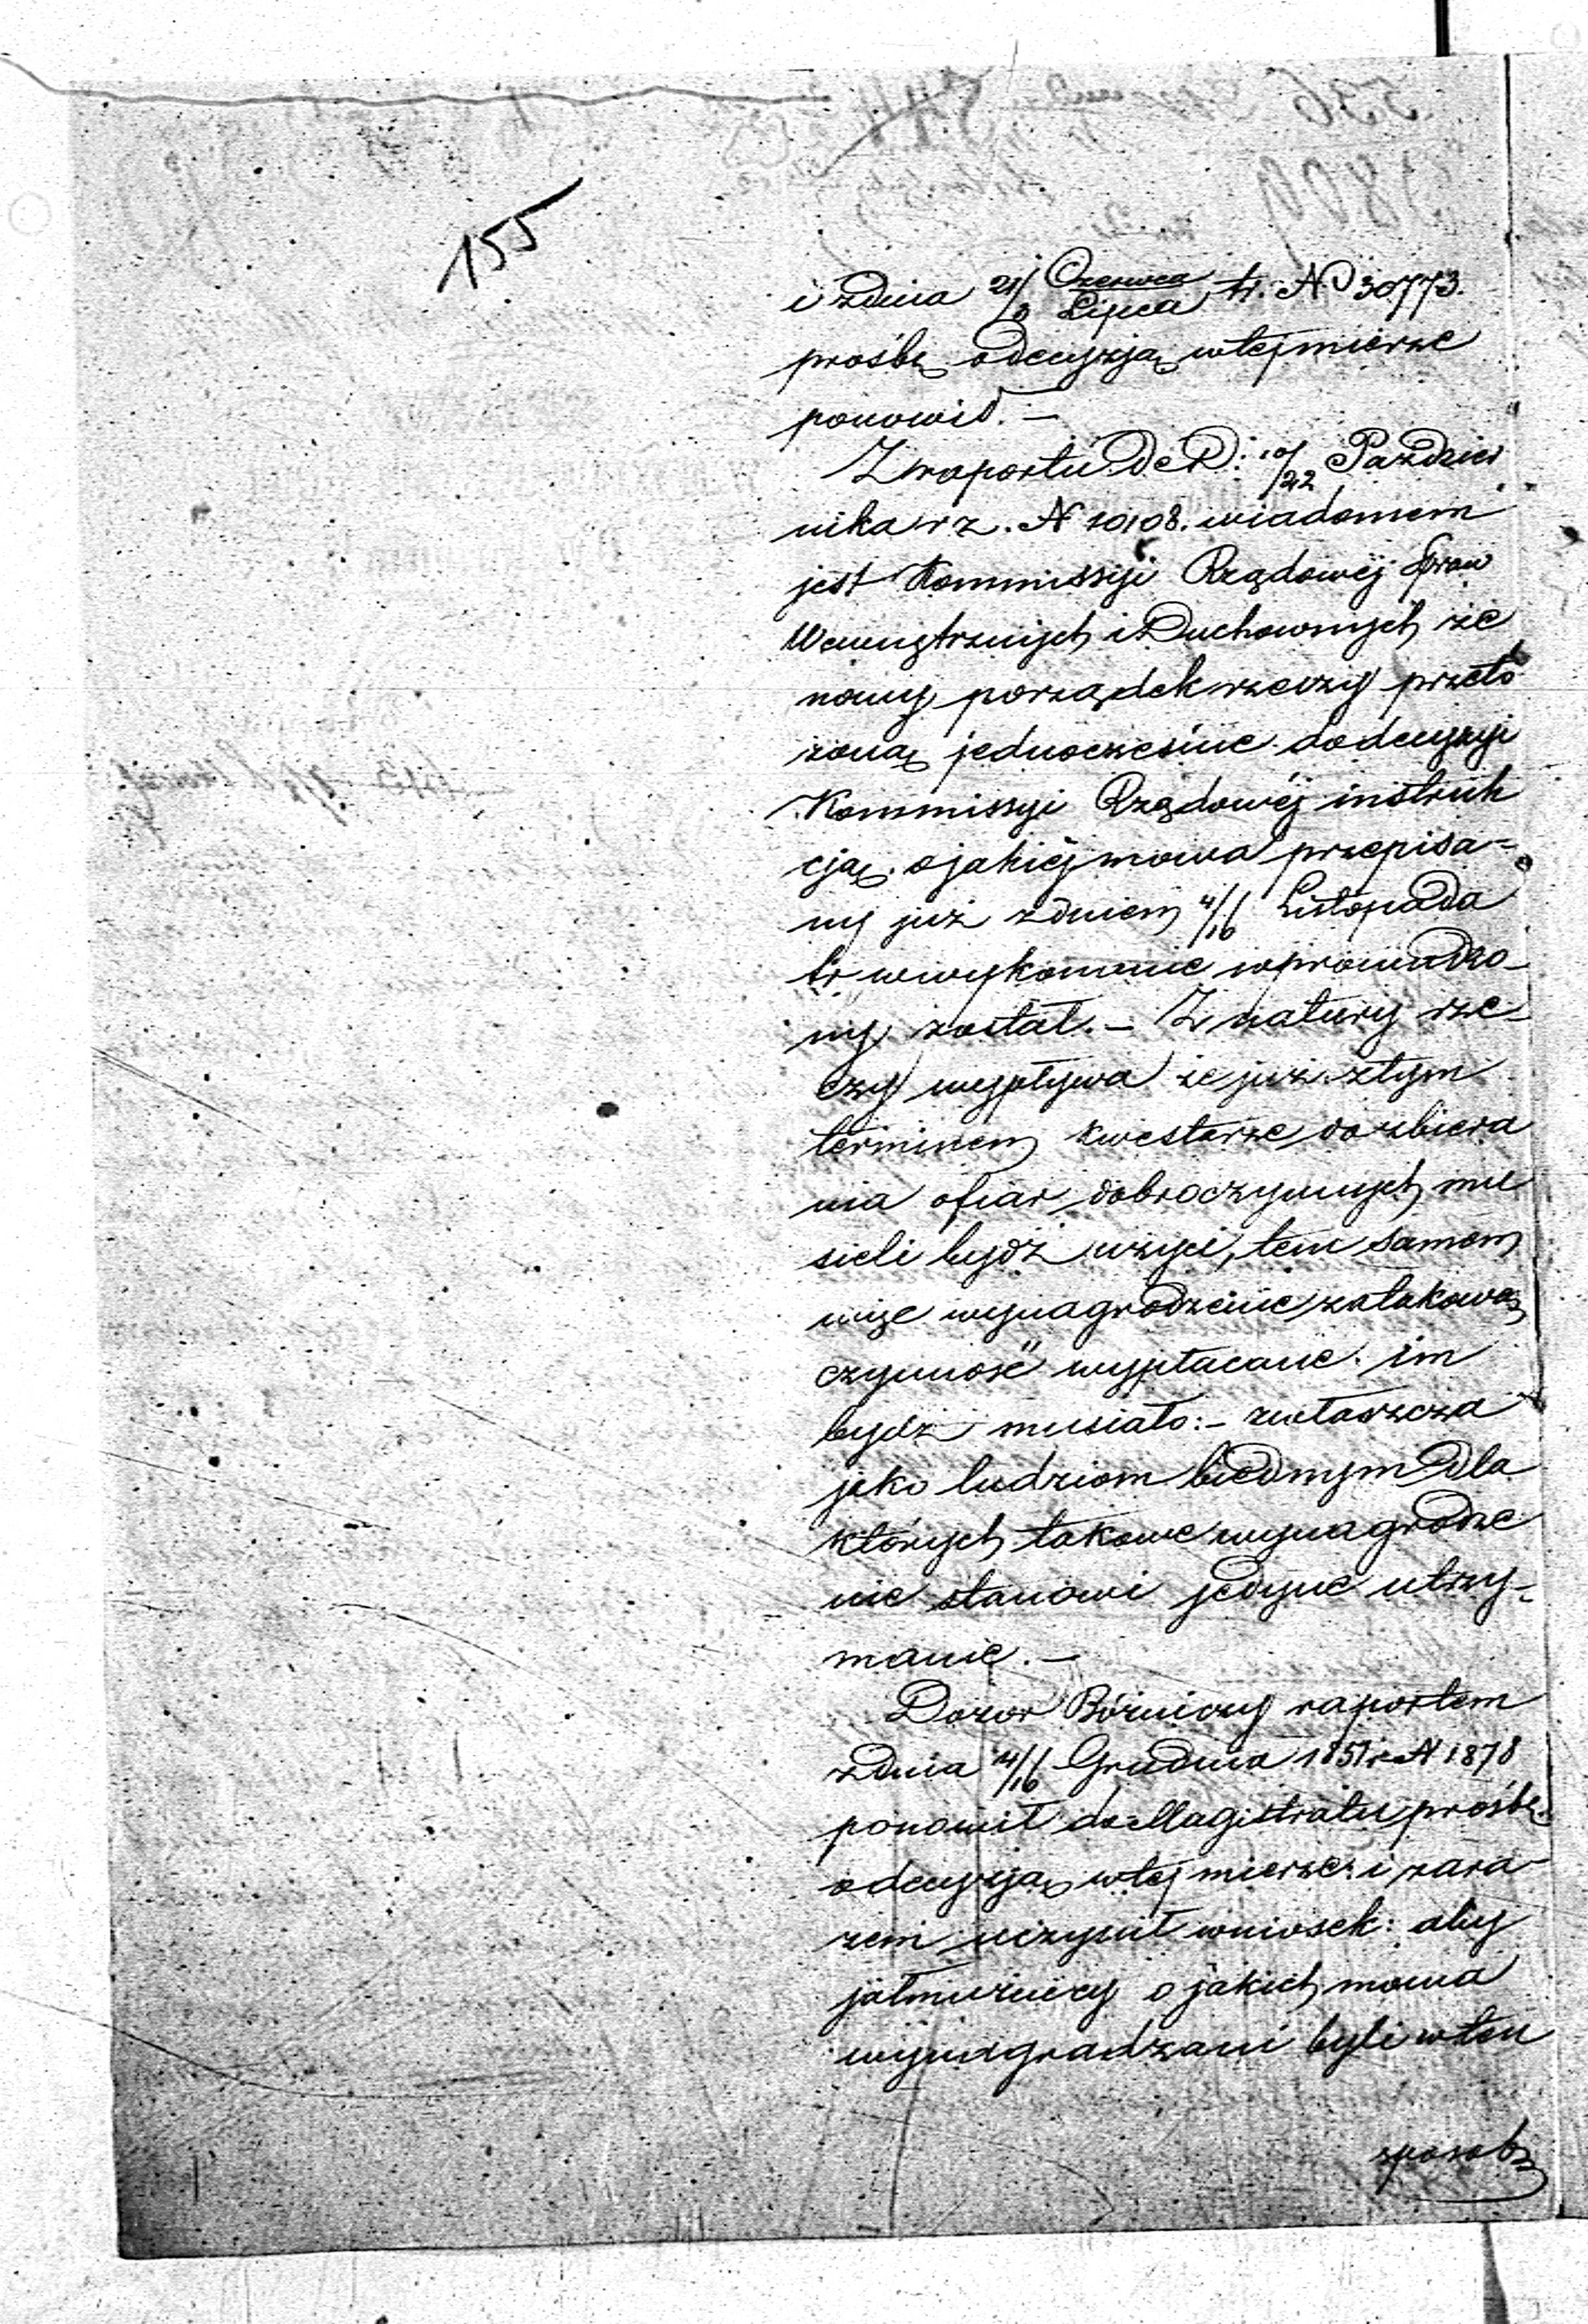 155
i zdnia 21/3 Czerwca/Lipca tr. N 30773.
prośbę odecyzją wtej mierze
ponowił. —
Z raportu De D: 10/22 Paździer
nika r z. N 10108. wiadomem
jest Kommissyi Rządowéj Spraw
Wewnętrznych i Duchownych że
nowy porządek rzeczy przeło
żoną jednocześnie do decyzyi
Kommissyi Rządowéj instruk
cją o jakiéj mowa przepisa-
ny już zdniem 4/16 Listopada
tr wwykonanie wprowadzo-
ny został. — Z natury rze-
czy wypływa że już ztym
terminem kwestarze do zbiera
nia ofiar dobroczynnych mu
sieli bydź użyci, tem samem
więc wynagrodzenie za takową
czynność wypłacane im
bydz musiało: — zwłaszcza
jako ludziom biednym dla
których takowe wynagrodze
nie stanowi jedyne utrzy-
manie. —
Dozor Bóżniczy raportem
zdnia 4/16 Grudnia 1851 r N 1878
ponowił do Magistratu prośbę
odecyzją wtej mierze i zara-
zem uczynił wniosek: aby
jałmużnicy o jakich mowa
wynagradzani byli wten
sposob